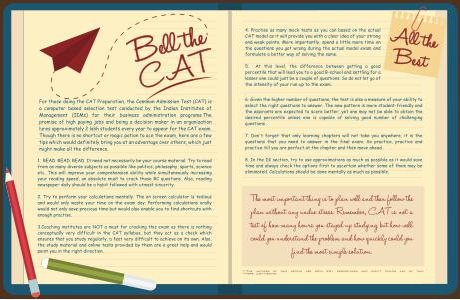 Bell the
CAT
For those doing the CAT Preparation, the Common Admission Test (CAT) is
a computer based selection test conducted by the Indian Institutes of
Management (IIMs) for their business administration programs. The
promise of high paying jobs and being a decision maker in an organisation
lures approximately 2 lakh students every year to appear for the CAT exam.
Though there is no shortcut or magic potion to ace the exam, here are a few
tips which would definitely bring you at an advantage over others, which just
might make all the difference.
1. READ, READ, READ. It need not necessarily be your course material. Try to read
from as many diverse subjects as possible like political, philosophy, sports, science
etc. This will improve your comprehension ability while simultaneously increasing
your reading speed, an absolute must to crack those RC questions. Also, reading
newspaper daily should be a habit followed with utmost sincerity.
2. Try to perform your calculations mentally. The on screen calculator is tedious
and would only waste your time on the exam day. Performing calculations orally
would not only save precious time but would also enable you to find shortcuts with
enough practise.
3.Coaching institutes are NOT a must for cracking this exam as there is nothing
conceptually very difficult in the CAT syllabus, but they act as a check which
ensures that you study regularly, a feat very difficult to achieve on its own. Also,
the study material and online tests provided by them are a great help and would
point you in the right direction.
All the
Best
4. Practice as many mock tests as you can based on the actual
CAT model as it will provide you with a clear idea of your strong
and weak points. More importantly, spend a little more time on
the questions you got wrong during the actual model exam and
formulate a better way of solving the same.
5. At this level, the difference between getting a good
percentile that will lead you to a good b-school and settling for a
lesser one could just be a couple of questions. So do not let go of
the intensity of your run up to the exam.
6. Given the higher number of questions, the test is also a measure of your ability to
select the right questions to answer. The new pattern is more student-friendly and
the aspirants are expected to score better, yet one may not be able to obtain the
desired percentile unless one is capable of solving good number of challenging
questions.
7. Don't forget that only learning chapters will not take you anywhere, it is the
questions that you need to answer in the final exam. So practice, practice and
practice till you are perfect at the chapter and then move ahead.
8. In the DI section, try to use approximations as much as possible as it would save
time and always check the options first to ascertain whether some of them may be
eliminated. Calculations should be done mentally as much as possible.
The most important thing is to plan well and then follow the
plan without any undue stress. Remember, CAT is not a
test of how many hours you stayed up studying but how well
could you understand the problem and how quickly could you
find the most simple solution.